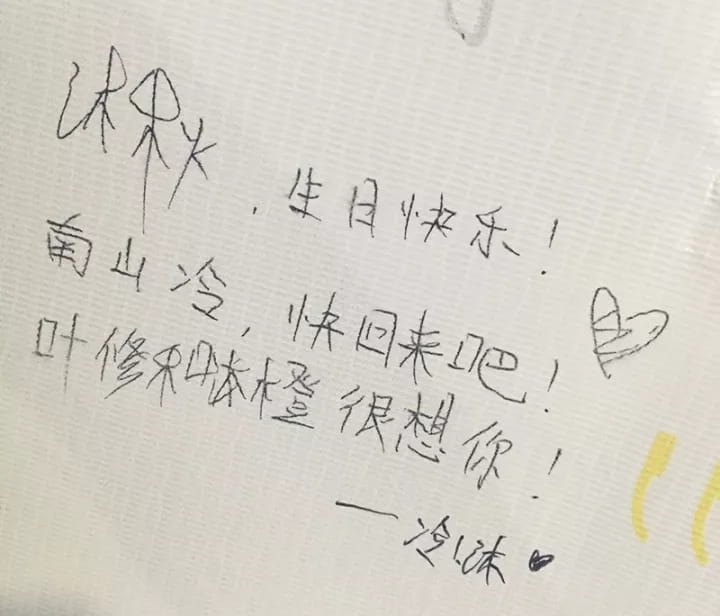 沐秋,生日快乐!
南山冷,快回来吧!
叶修和沐橙很想你!
一冷沐